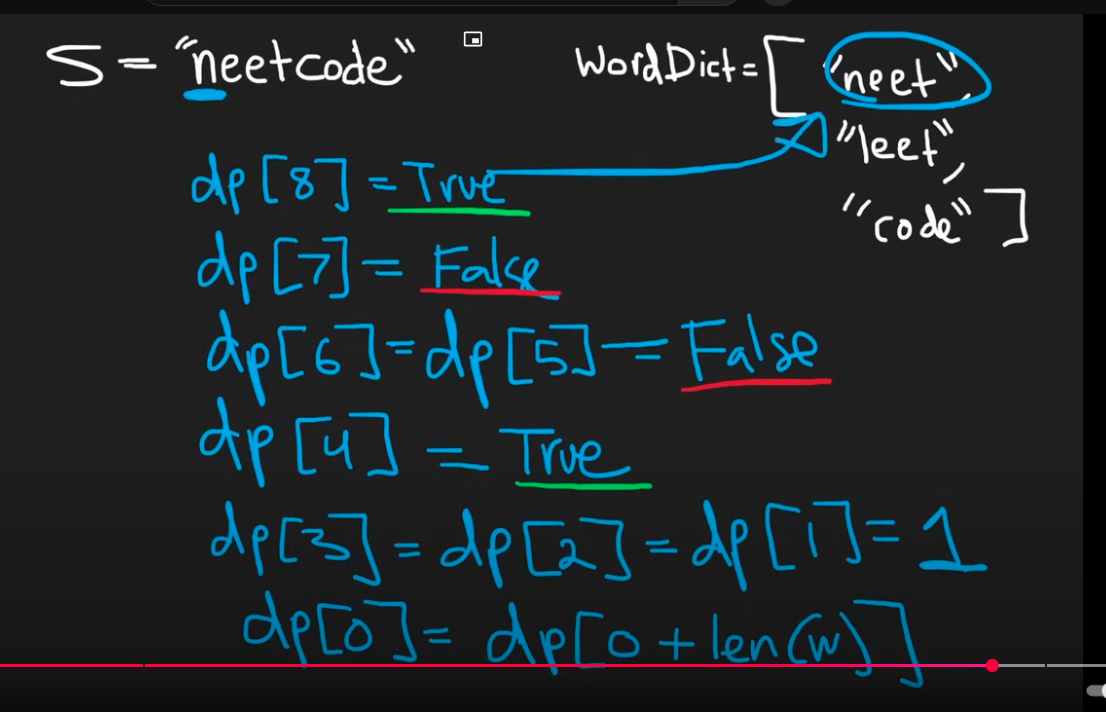 S = "neetcode"
WordDict = [ "neet",
"leet",
"code" ]
dp[8] = True
dp[7] = False
dp[6] = dp[5] = False
dp[4] = True
dp[3] = dp[2] = dp[1] = 1
dp[0] = dp[0 + len(w)]